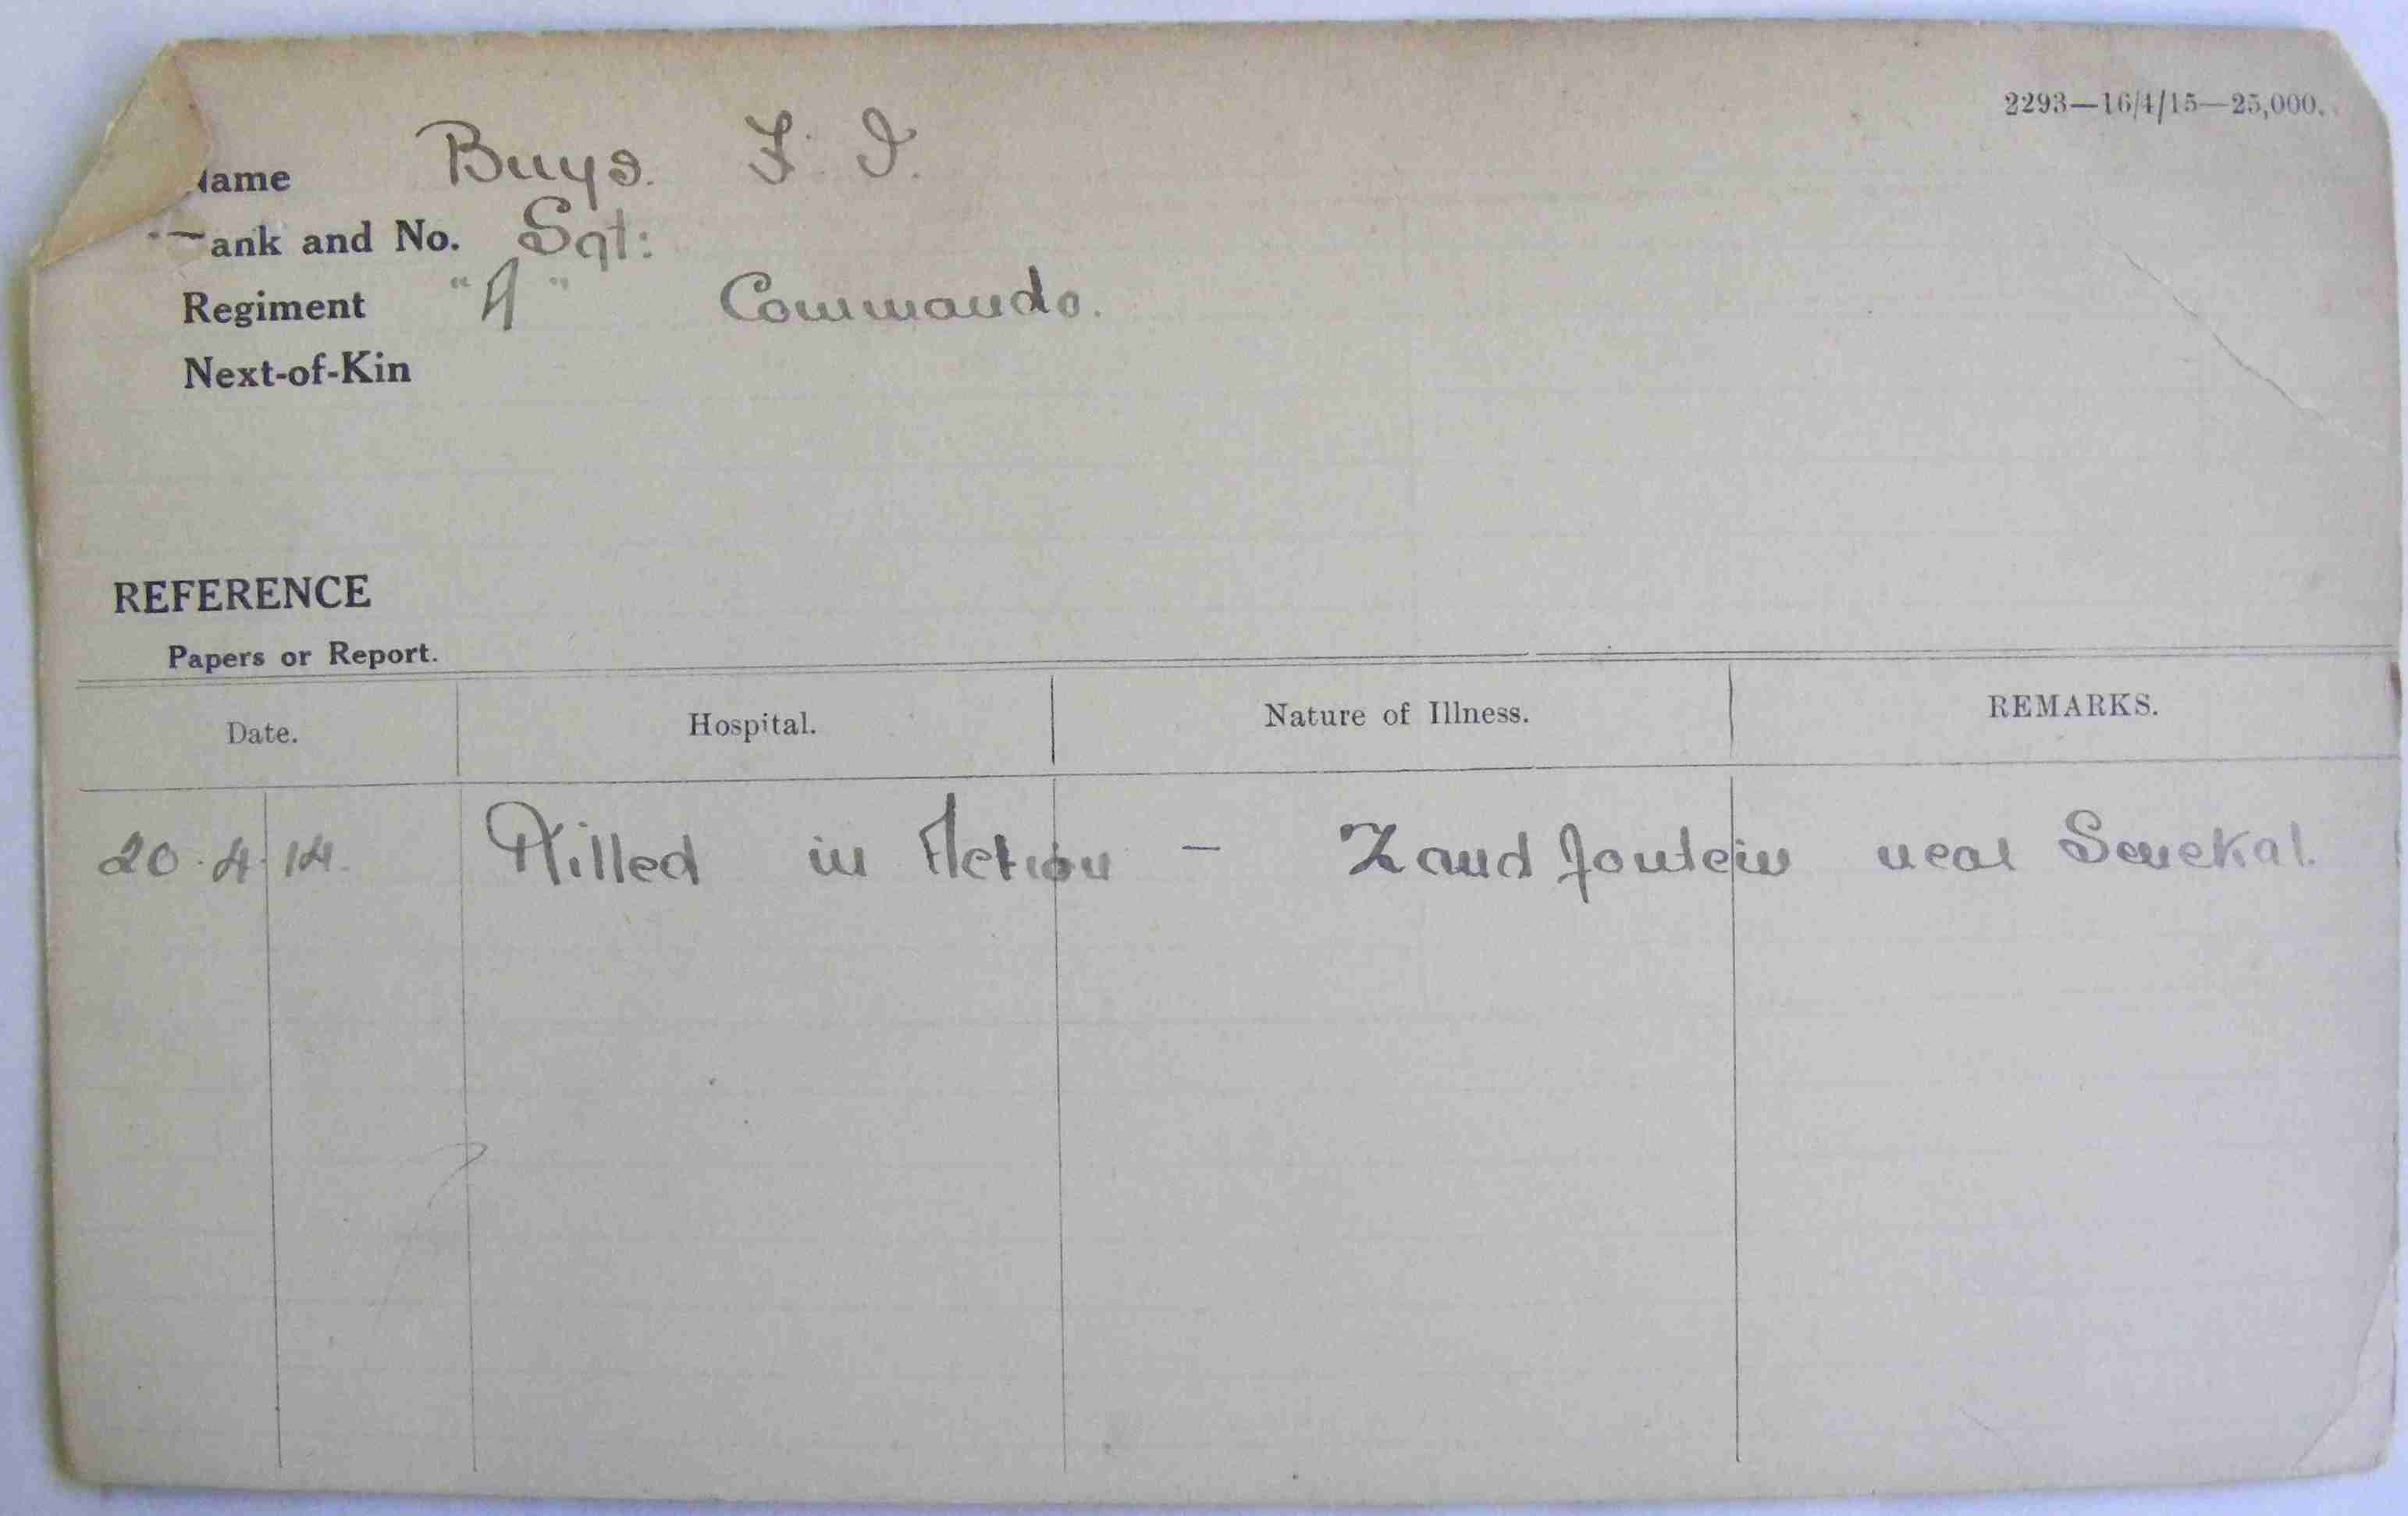 2293—16/4/15—25,000.
Name Buys. F. J.
Rank and No. Sgt:
Regiment "A" Commando.
Next-of-Kin
REFERENCE
Papers or Report.
Date. Hospital. Nature of Illness. REMARKS.
20.4.14. Killed in Action - Zandfontein near Senekal.